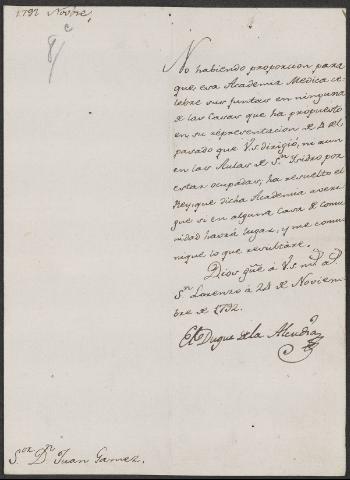 1792 Novbre,
8c
No habiendo proporcion para
que esa Academia Medica ce-
lebre sus Juntas en ninguna
de las Casas que ha propuesto
en su representacion de 4 del
pasado que V.S. dirigió, ni aun
en las Aulas de Sn. Isidro por
estar ocupadas; ha resuelto el
Rey, que dicha Academia averi-
gue si en alguna Casa de Comu-
nidad havrá lugar, y me comu-
nique lo que resultáre.
Dios gũe á V.S. ms. as.
Sn. Lorenzo á 24 de Noviem-
bre de 1792.
El Duque de la Alcudia
Sor. Dn. Juan Gamez.